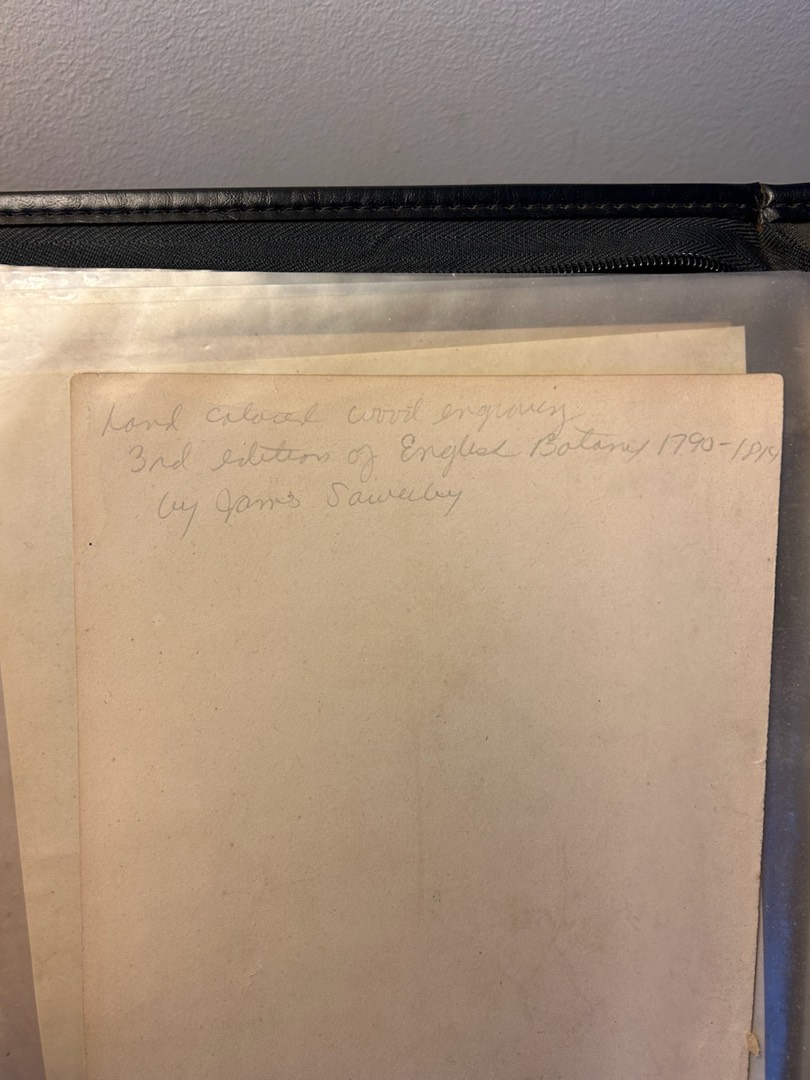 hand colored wood engraving
3rd edition of English Botany 1790-1814
by James Sowerby